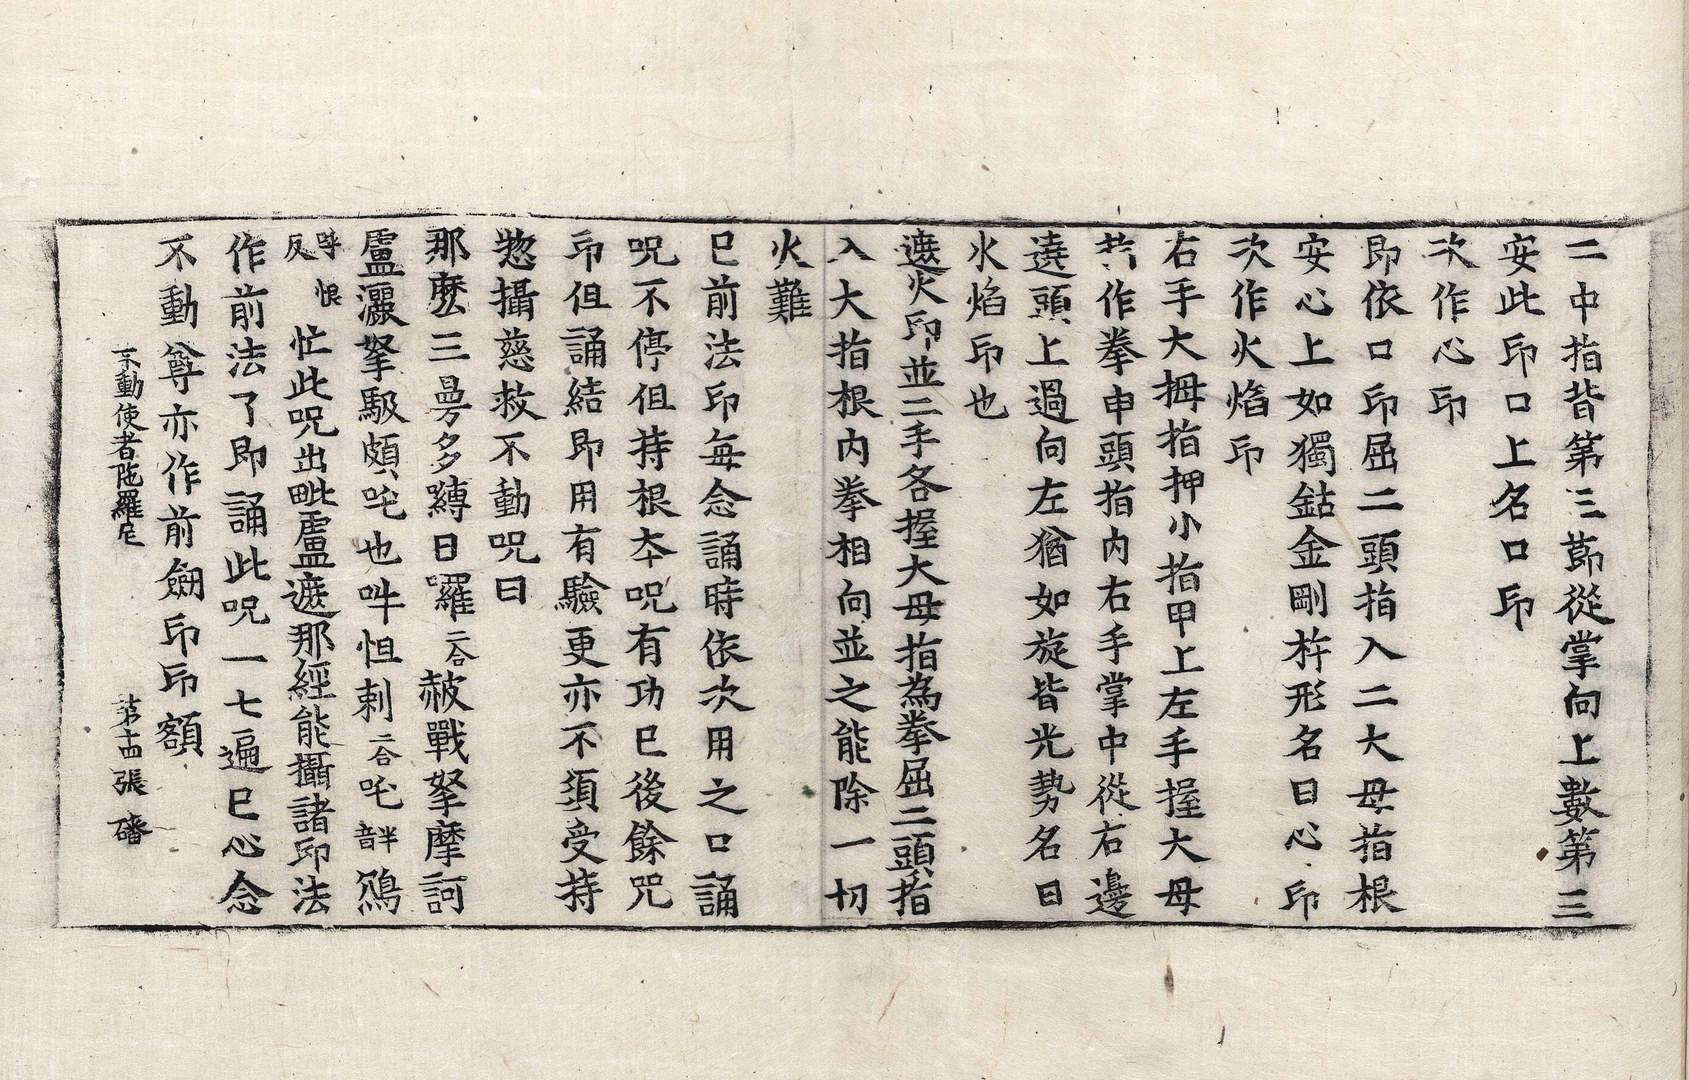 二中指背第三節從掌向上數第三
安此印口上名口印
次作心印
即依口印屈二頭指入二大母指根
安心上如獨鈷金剛杵形名曰心印
次作火焰印
右手大拇指押小指甲上左手握大母
指作拳申頭指內右手掌中從右邊
遶頭上過向左猶如旋皆光勢名曰
火焰印也
遮火印並二手各握大母指為拳屈二頭指
入大指根內拳相向並之能除一切
火難
已前法印每念誦時依次用之口誦
呪不停但持根夲呪有功已後餘呪
印但誦結即用有驗更亦不須受持
惣攝慈救不動呪曰
那麼三曼多縛日囉二合赧戰拏摩訶
盧灑拏馺頗吒也吽怛剌二合吒半音𤨏
呼恨反忙此呪出毗盧遮那經能攝諸印法
作前法了即誦此呪一七遍已心念
不動尊亦作前劒印印額
不動使者陁羅尼　第十四張　磻